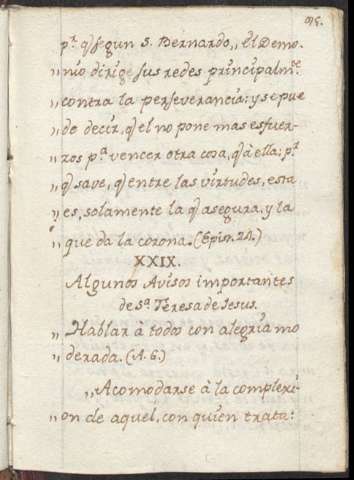 pr. q̃ segun S. Bernardo,, El Demo-
,, nio dirige sus redes principalmte.
,, contra la perseverancia: y se pue
,, de decir, q̃ el no pone mas esfuer-
,, zos pa. vencer otra cosa, q̃ à ella; pr.
,, q̃ save, q̃ entre las virtudes, esta
,, es, solamente la q̃ asegura, y la
,, que da la corona. (Epis. 24.)
XXIX.
Algunos Avisos importantes
de Sa. Teresa de Jesus.
,, Hablar à todos con alegria mo
,, derada. (A. 6.)
,, Acomodarse à la complexi-
,, on de aquel, con quien trata: